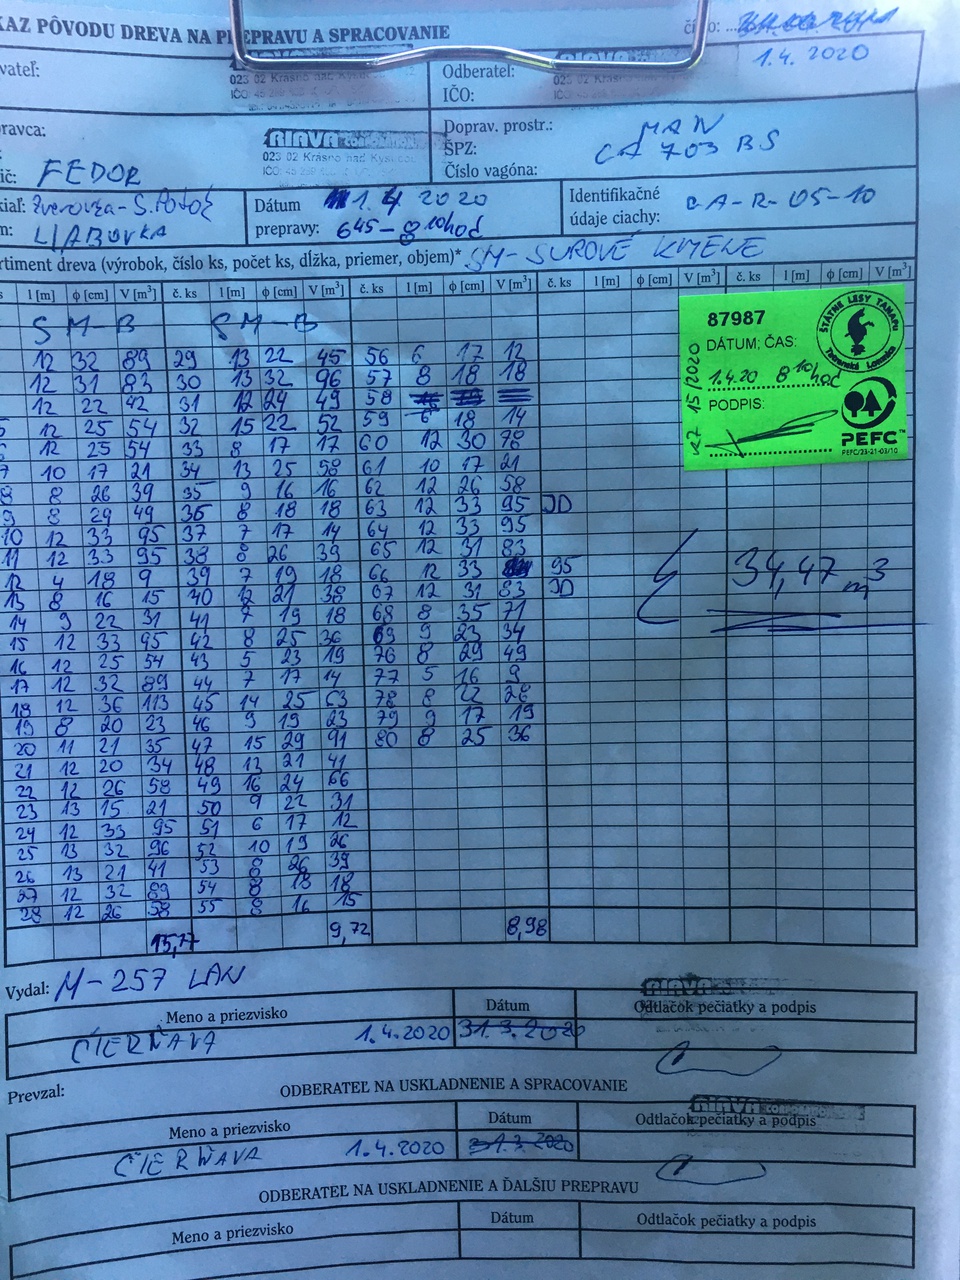 KAZ PÔVODU DREVA NA PREPRAVU A SPRACOVANIE
číslo:
1.4.2020
vateľ:
023 02 Krásno nad Kysucou
Odberateľ:
IČO:
ravca:
RIAVA CORPORATION
023 02 Krásno nad Kysucou
ič: FEDOR
Doprav. prostr.: MAN
ŠPZ: CA 703 BS
Číslo vagóna:
Zverovka-S.Potok
LIABOVKA
Dátum 1.4 2020
prepravy: 645-8 10hod
Identifikačné
údaje ciachy: CA-R-05-10
rtiment dreva (výrobok, číslo ks, počet ks, dĺžka, priemer, objem)* SM-SUROVÉ KMENE
l [m] ϕ [cm] V [m³] č. ks l [m] ϕ [cm] V [m³] č. ks l [m] ϕ [cm] V [m³] č. ks l [m] ϕ [cm] V [m³] č. ks l [m] ϕ [cm] V [m³]
SM-B SM-B
12 32 89 29 13 22 45 56 6 17 12
12 31 83 30 13 32 96 57 8 18 18
12 22 42 31 12 24 49 58
5 12 25 54 32 15 22 52 59 8 18 14
6 12 25 54 33 8 17 17 60 12 30 78
7 10 17 21 34 13 25 58 61 10 17 21
8 8 26 39 35 9 16 16 62 12 26 58
9 8 29 49 36 8 18 18 63 12 33 95 JD
10 12 33 95 37 7 17 14 64 12 33 95
11 12 33 95 38 8 26 39 65 12 31 83
12 4 18 9 39 7 19 18 66 12 33 95
13 8 16 15 40 12 21 38 67 12 31 83 JD
14 9 22 31 41 7 19 18 68 8 35 71
15 12 33 95 42 8 25 36 69 9 23 34
16 12 25 54 43 5 23 19 76 8 29 49
17 12 32 89 44 7 17 14 77 5 16 9
18 12 36 113 45 14 25 63 78 8 22 28
19 8 20 23 46 9 19 23 79 9 17 19
20 11 21 35 47 15 29 91 80 8 25 36
21 12 20 34 48 13 21 41
22 12 26 58 49 16 24 66
23 13 15 21 50 9 22 31
24 12 33 95 51 6 17 12
25 13 32 96 52 10 19 26
26 13 21 41 53 8 26 39
27 12 32 89 54 8 18 18
28 12 26 58 55 8 16 15
15,77 9,72 8,98
34,47 m3
87987
DÁTUM; ČAS:
1.4.20 8 10hod
PODPIS:
15/2020
ŠTÁTNE LESY TANAPu
Tatranská Lomnica
PEFC™
PEFC/23-21-03/10
Vydal: M-257 LAN
Meno a priezvisko
Dátum
Odtlačok pečiatky a podpis
ČIERŇAVA 1.4.2020 31.3.2020
Prevzal:
ODBERATEĽ NA USKLADNENIE A SPRACOVANIE
Meno a priezvisko
Dátum
Odtlačok pečiatky a podpis
RIAVA CORPORATION
ČIERŇAVA 1.4.2020 31.3.2020
ODBERATEĽ NA USKLADNENIE A ĎALŠIU PREPRAVU
Meno a priezvisko
Dátum
Odtlačok pečiatky a podpis